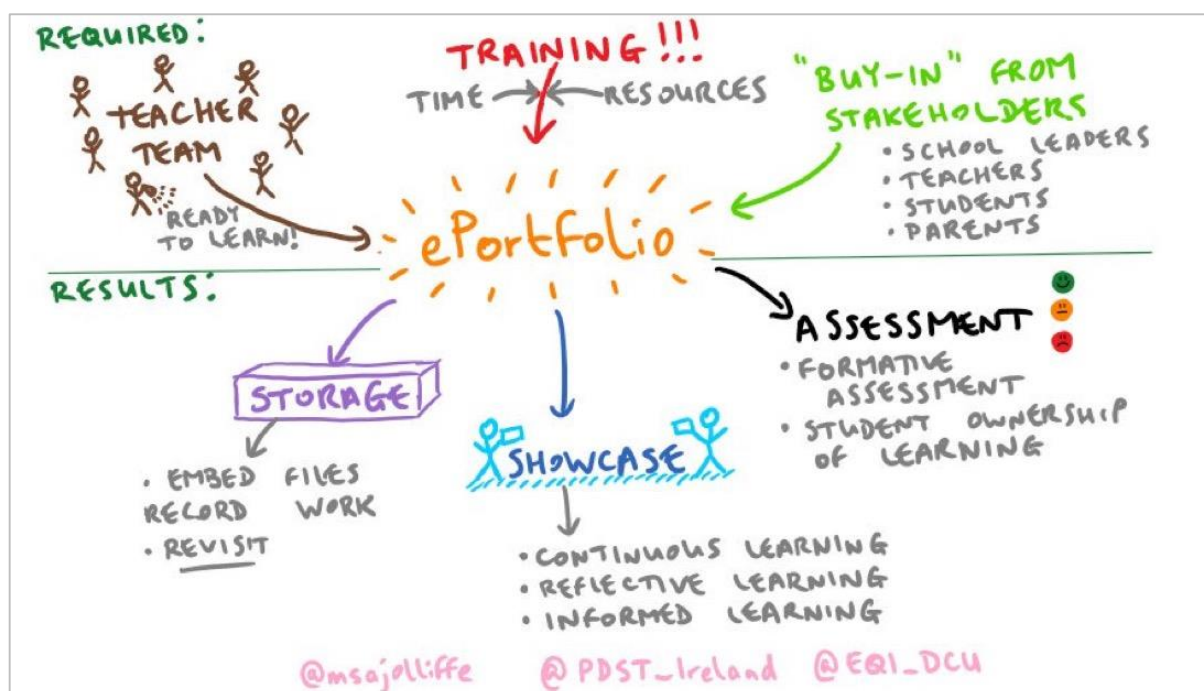 REQUIRED:
TEACHER
TEAM
READY
TO LEARN!
TRAINING!!!
TIME
RESOURCES
"BUY-IN" FROM
STAKEHOLDERS
• SCHOOL LEADERS
• TEACHERS
• STUDENTS
• PARENTS
ePortfolio
RESULTS:
STORAGE
• EMBED FILES
RECORD WORK
• REVISIT
SHOWCASE
• CONTINUOUS LEARNING
• REFLECTIVE LEARNING
• INFORMED LEARNING
ASSESSMENT
• FORMATIVE
ASSESSMENT
• STUDENT OWNERSHIP
OF LEARNING
@msajolliffe @PDST_Ireland @EQI_DCU